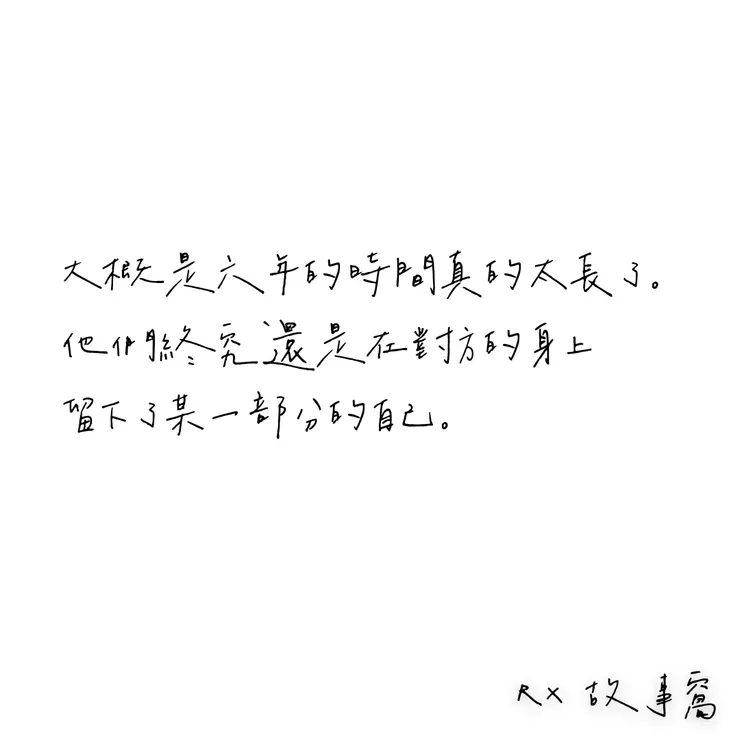 大概是六年的時間真的太長了。
他們終究還是在對方的身上
留下了某一部分的自己。
RX 故事窩